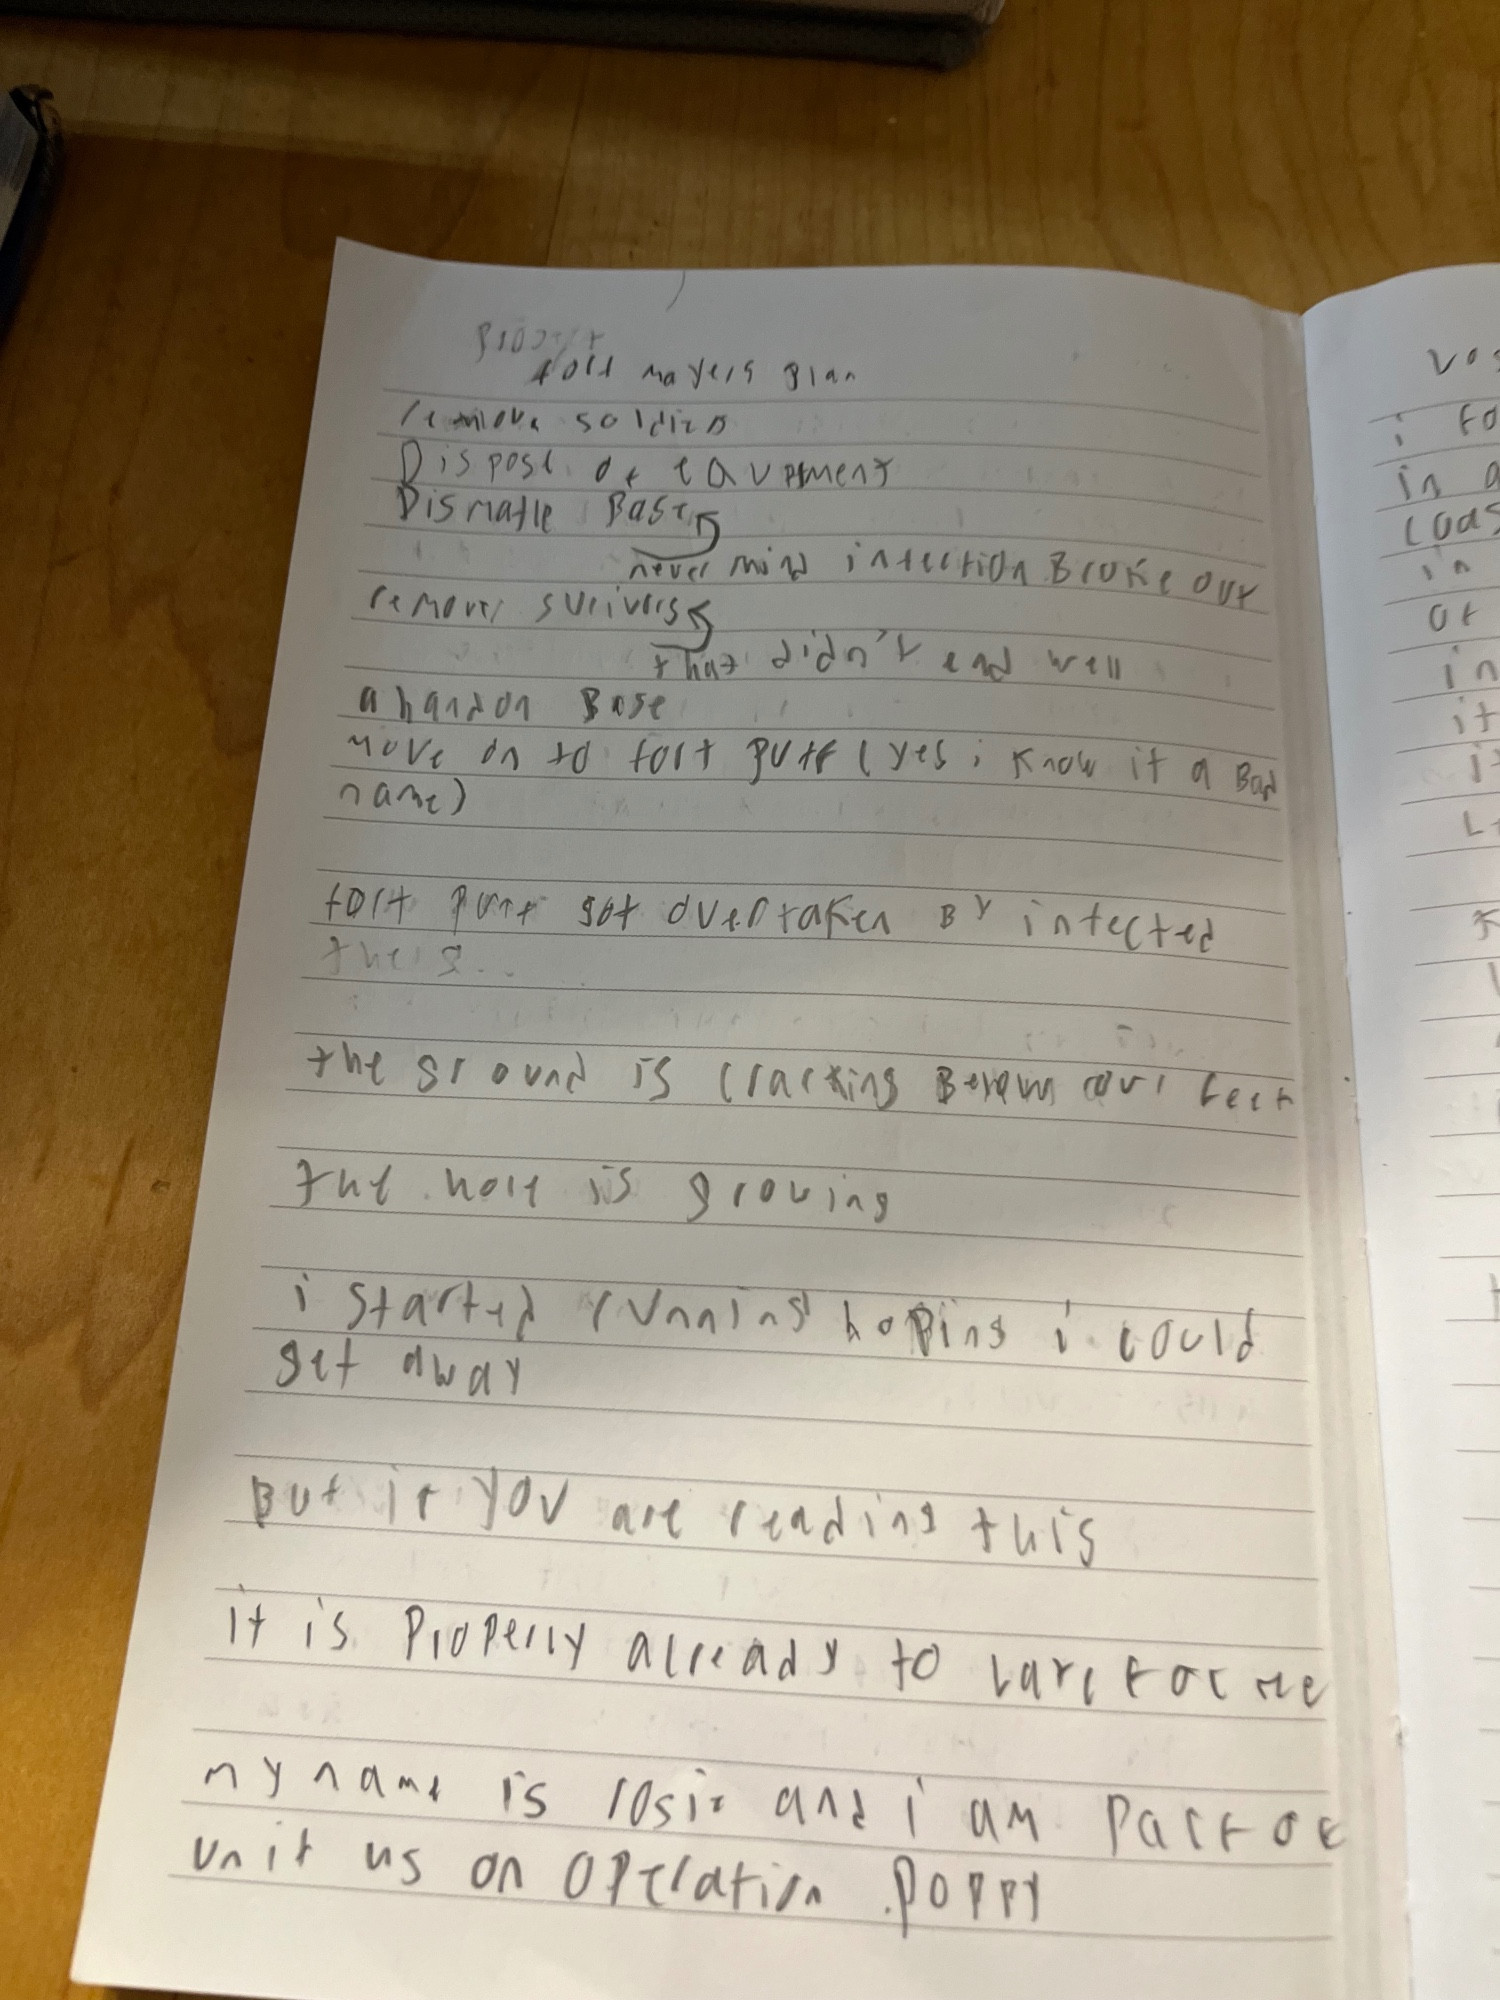 fort mayers plan
remove soldirs
Dispose of eqvpment
Dismatle Base
never mind infection Broke out
remover surivers
that didn't end well
abandon Base
move on to fort putt (yes i know it a Bad
name)
fort got overtaken By infected
the ground is cracking our feet
the hole is growing
i started running hoping i could
get away
But if you are reading this
it is Properly already to late for me
my name is rosie and i am Part of
unit us on operation poppy
i fo
in a
in
of
in
it